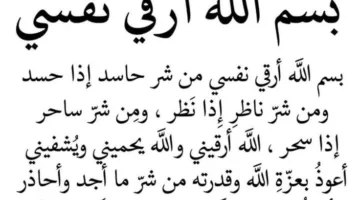 بسم الله أرقي نفسي
بسم اللَّه أرقي نفسي من شر حاسد إذا حسد
ومن شرّ ناظرٍ إذَا نَظر ، ومِن شرّ ساحر
إذا سحر ، اللَّه أرقيني واللَّه يحميني ويُشفيني
أعوذُ بعزّةِ اللَّه وقدرته من شرّ ما أجد وأحاذر